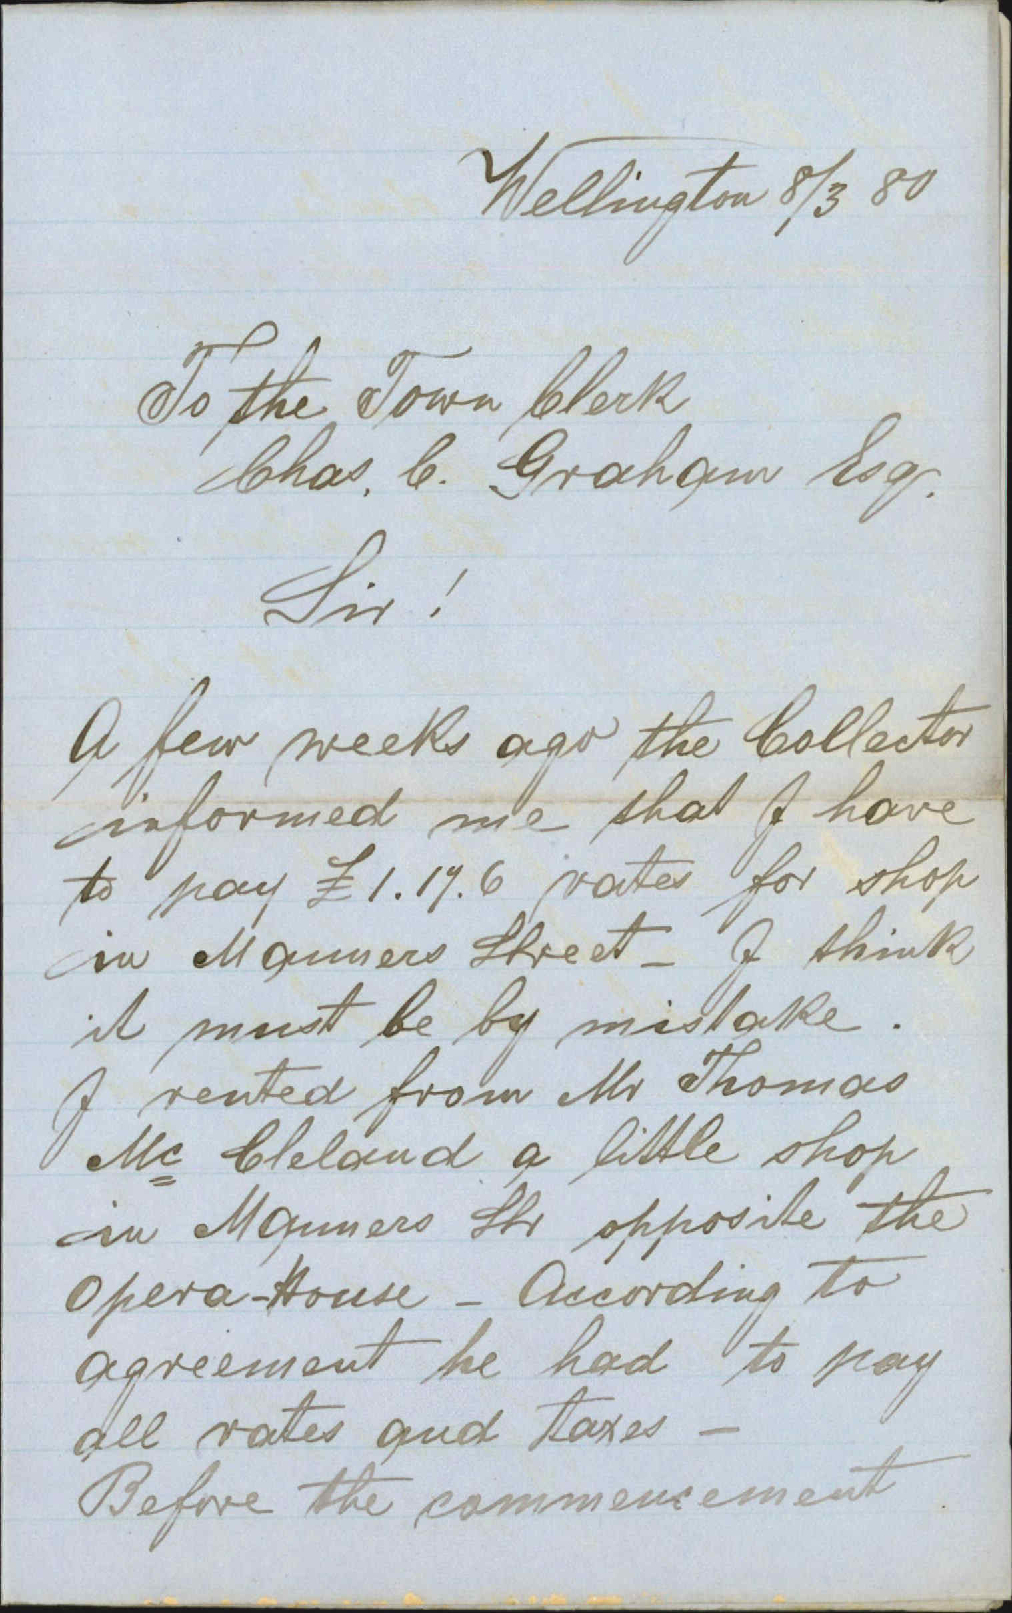 Wellington 8/3 80
To the Town Clerk
Chas. C. Graham Esq.
Sir!
A few weeks ago the Collector
informed me that I have
to pay £1.17.6 rates for shop
in Manners Street_ I think
it must be by mistake.
I rented from Mr Thomas
Mc Cleland a little shop
in Manners Str opposite the
Opera-House _ According to
agreement he had to pay
all rates and taxes _
Before the commencement